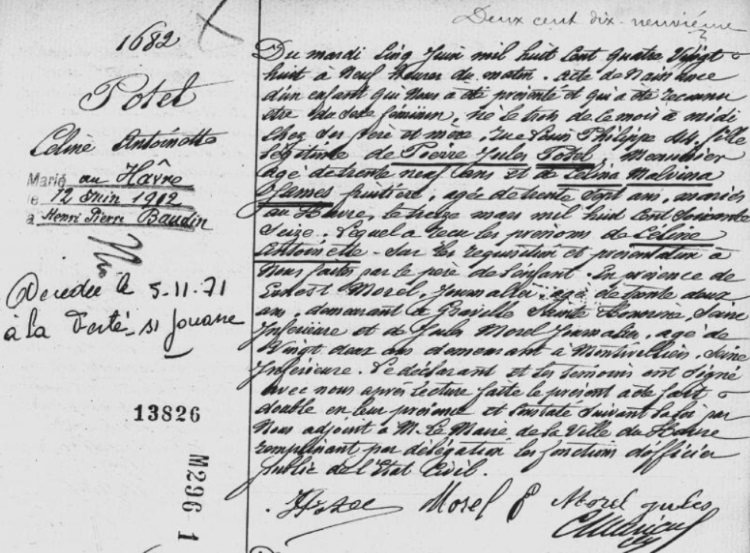 Deux cent dix-neuvième
1682
Potel
Céline Antoinette
Marié au Hâvre
le 12 Juin 1912
à Henri Pierre Baudin
Décédée le 5-11-71
à la Ferté-ss Jouarre
13826
M296 1
Du mardi Cinq Juin mil huit Cent quatre Vingt
huit à Neuf heures du matin. Acte de Naissance
d'un enfant qui Nous a été présenté et qui a été reconnu
être du sexe féminin, né le trois de ce mois à midi
chez ses père et mère, rue Louis Philippe, fille
légitime de Pierre Jules Potel, Menuisier
âgé de trente neuf ans et de Célina Malvina
fruitière, âgée de trente Sept ans, mariés
au Havre, le treize mars mil huit Cent Soixante
Seize. Lequel a reçu les prénoms de Céline
Antoinette. Sur la réquisition et présentation à
Nous faites par le père de l'enfant. En présence de
Ernest Morel, Journalier, âgé de trente deux
ans, demeurant à Graville Sainte Honorine, Seine
Inférieure et de Jules Morel Journalier, âgé de
Vingt deux ans demeurant à Montivilliers, Seine
Inférieure. Le déclarant et les témoins ont signé
avec nous après lecture faite le présent acte fait
double en leur présence et Constaté suivant la loi par
Nous adjoint à M. Le Maire de la Ville du Havre
remplissant par délégation les fonctions d'officier
public de l'Etat Civil.
Potel Morel E Morel jules